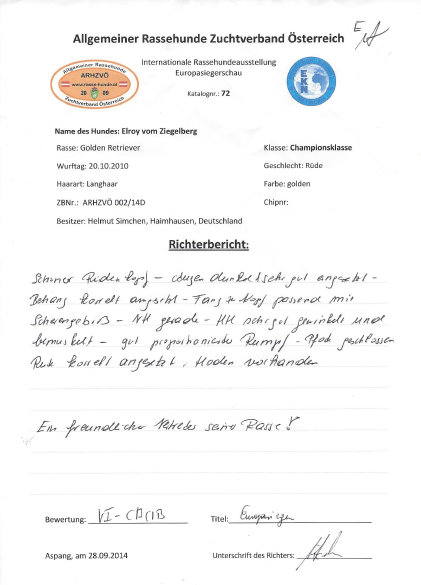 Allgemeiner Rassehunde Zuchtverband Österreich
Internationale Rassehundeausstellung
Europasiegerschau
Katalognr.: 72
Allgemeiner Rassehunde
ARHZVÖ
www.rasse-hunde.at
20 09
Zuchtverband Österreich
EKN
Name des Hundes: Elroy vom Ziegelberg
Rasse: Golden Retriever
Klasse: Championsklasse
Wurftag: 20.10.2010
Geschlecht: Rüde
Haarart: Langhaar
Farbe: golden
ZBNr.: ARHZVÖ 002/14D
Chipnr:
Besitzer: Helmut Simchen, Haimhausen, Deutschland
Richterbericht:
Schöner Rüdenkopf – Augen dunkel sehr gut angesetzt –
Behang korrekt angesetzt – Fang z. Kopf passend mit
Scherengebiß – VH gerade – HH sehr gut gewinkelt und
bemuskelt – gut proportionierter Rumpf – Pfote geschlossen
Rute korrekt angesetzt, Hoden vorhanden
Ein freundlicher Vertreter seiner Rasse!
Bewertung: V1 – CACIB
Titel: Europasieger
Aspang, am 28.09.2014
Unterschrift des Richters: